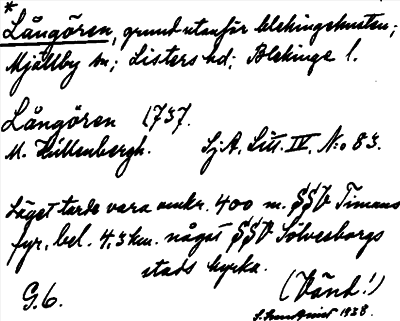 *
Långören, grund utanför blekingekusten;
Mjällby sn; Listers hd; Blekinge l.
Långören 1737.
M. Hüllenbergh. Sj.A. Litt. IV. N:o 83.
Läget torde vara omkr. 400 m. SSV Timans
fyr, bel. 4,3 km. något SSV Sölvesborgs
stads kyrka.
G.6. (Vänd!)
1938.